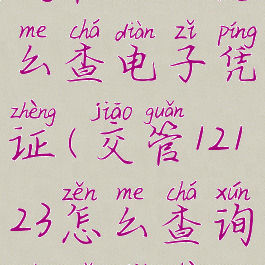 me chá diàn zǐ píng
么查电子凭
zhèng jiāo guǎn
证(交管121
zěn me chá xún
23怎么查询